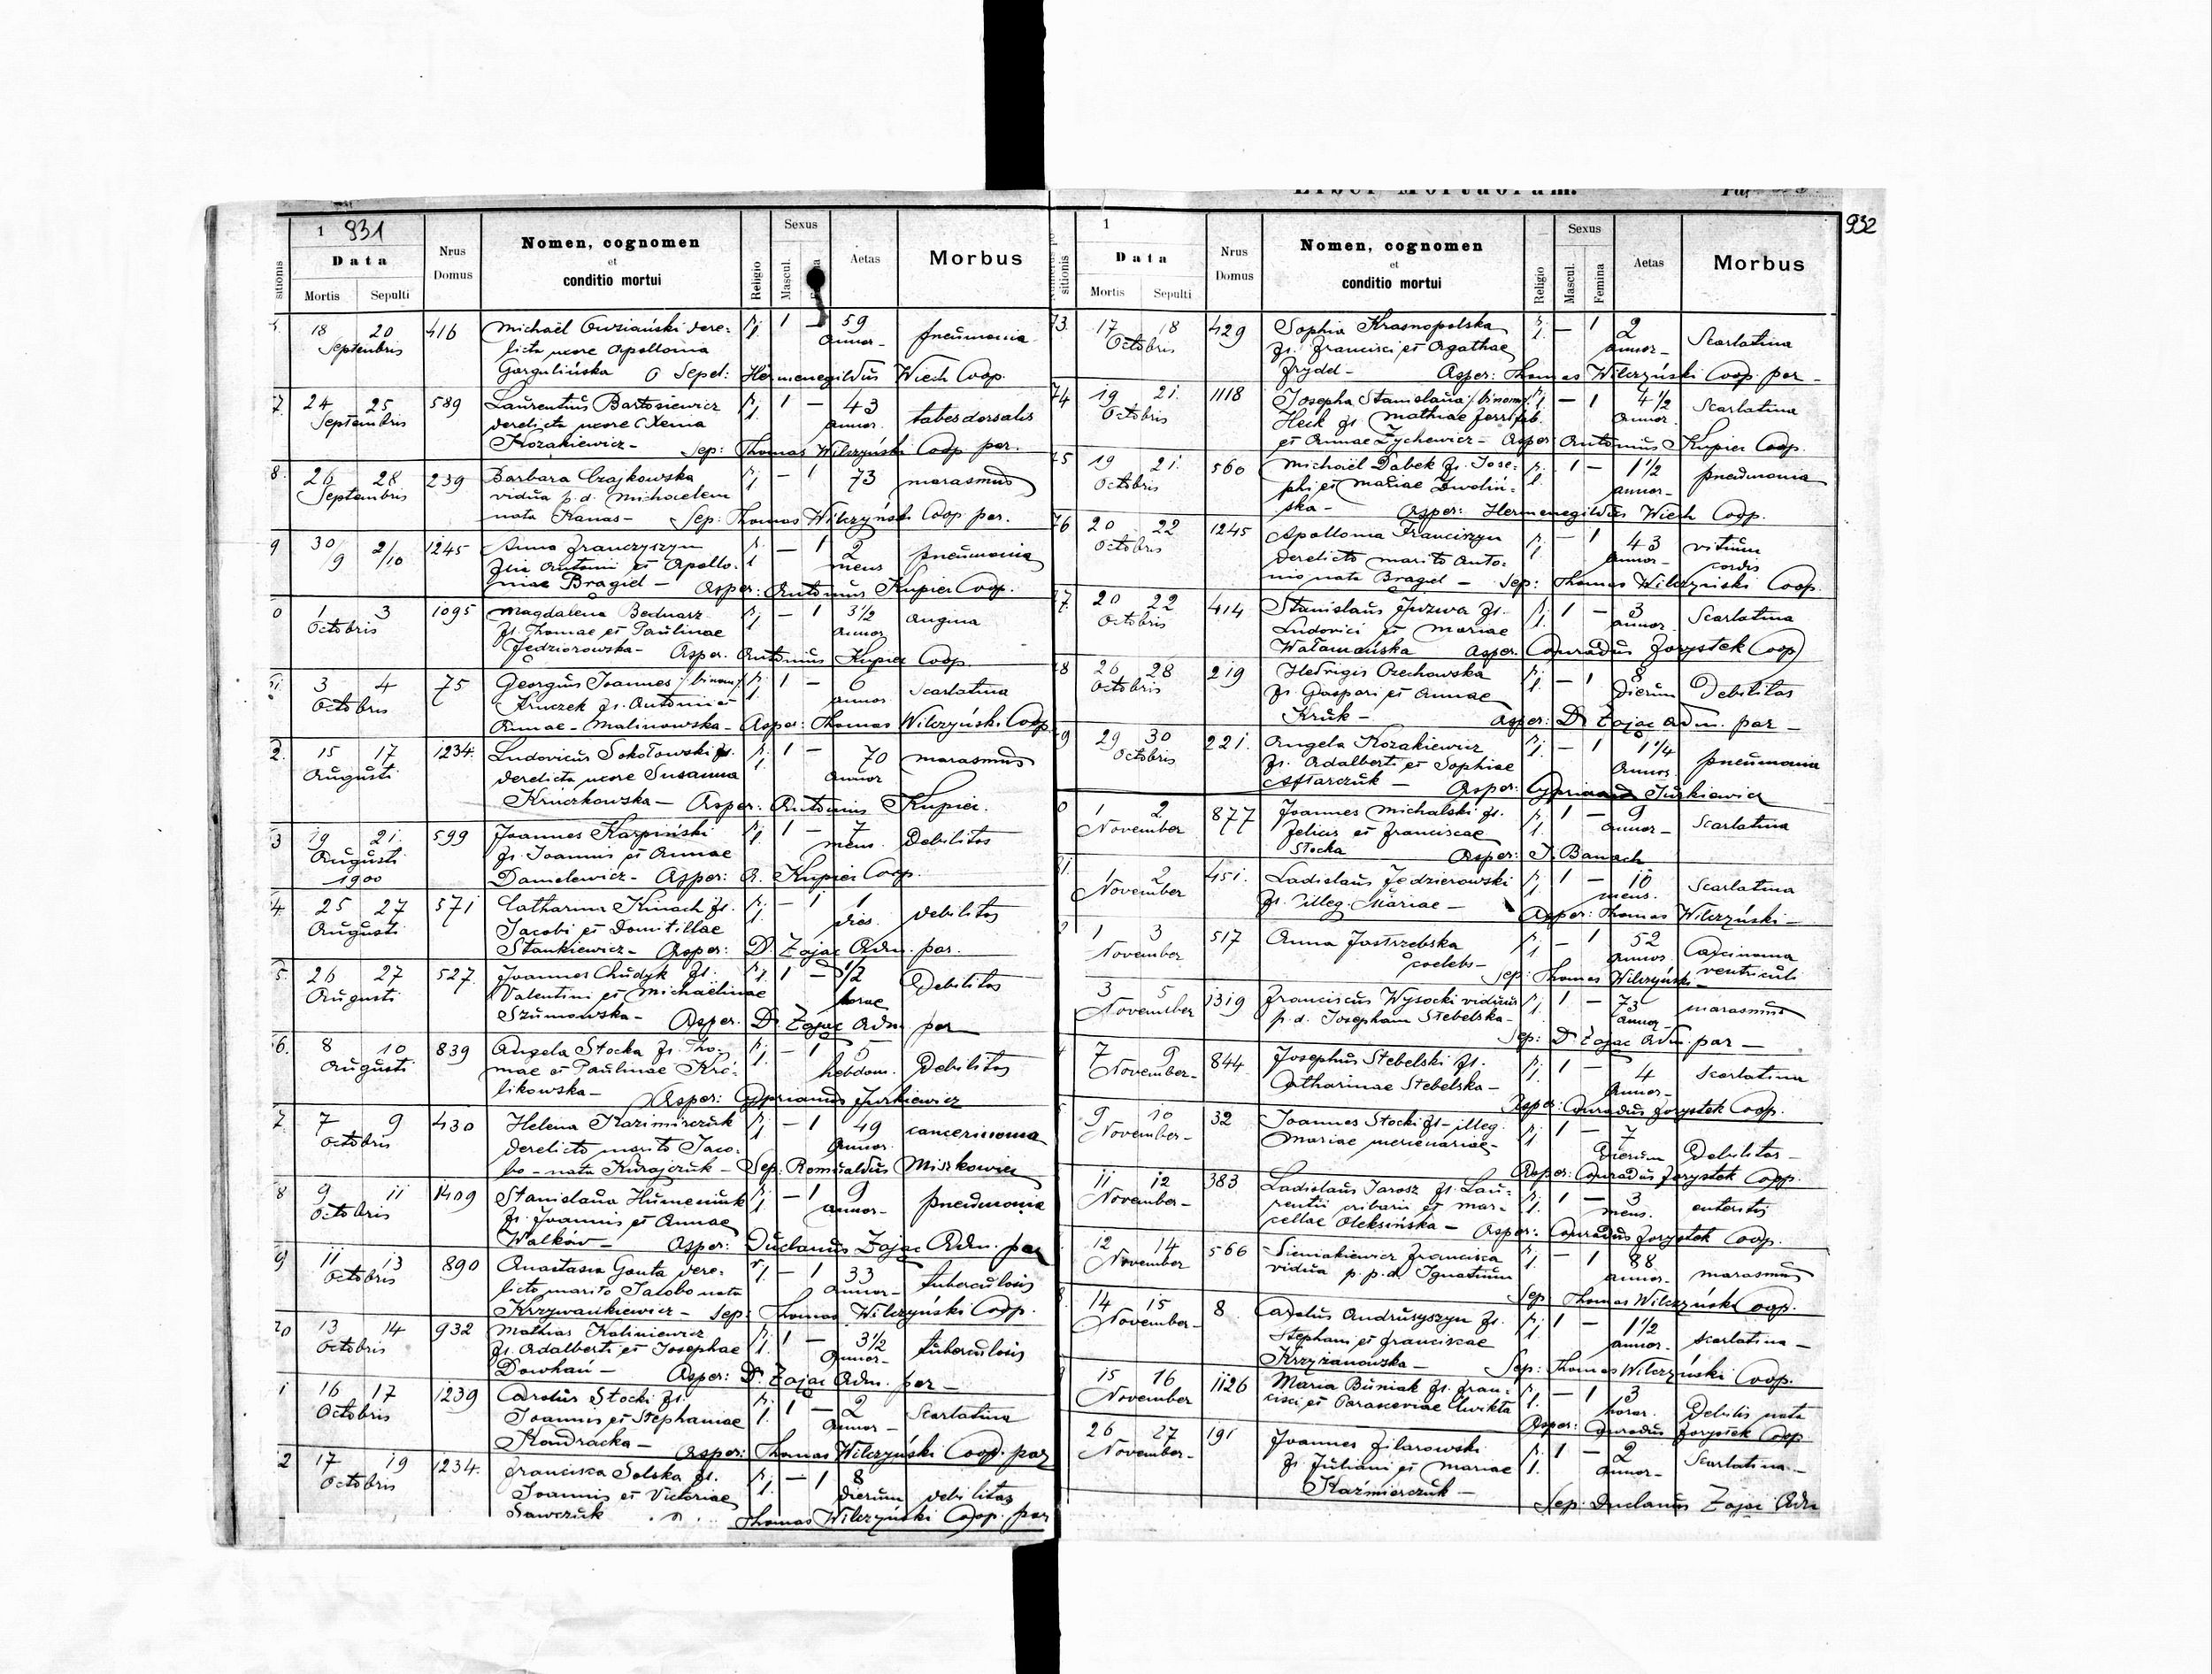 Liber Mortuorum.
931
932
1
Data
Mortis Sepulti
Nrus Domus
Nomen, cognomen
et
conditio mortui
Religio
Sexus
Mascul.
Aetas
Morbus
18 20 416 Michaël dere- r. 1 — 59 pneumonia
Septembris licta uxore Apollonia l. annor.
Gargulińska Sepel: Hermenegildus Wiech Coop.
7. 24 25 589 Laurentius Bartosiewicz r. 1 — 43 tabes dorsalis
Septembris derelicta uxore Xenia l. annor.
Kozakiewicz — Sep: Thomas Wilczyński Coop par.
8. 26 28 239 Barbara Czajkowska r. — 1 73 marasmus
Septembris vidua p. d. Michaelem l.
nata Kanas — Sep: Thomas Wilczyński Coop par.
9 30/9 2/10 1245 Anna Franczyszyn r. — 1 2 pneumonia
filia Antoni et Apollo- l. mens
niae Bragiel — Asper: Antonius Kupiec Coop.
0 1 3 1095 Magdalena Bednarz r. — 1 3½ angina
Octobris fs. Thomae et Paulinae l. annor
Jędziorowska — Asper. Antonius Kupiec Coop.
3 4 75 Georgius Joannes /: binom :/ r. 1 — 6 Scarlatina
Octobris Kruczek fs. Antoni et l. annor
Annae — Malinowska — Asper: Thomas Wilczyński Coop
2. 15 17 1234. Ludovicus Sokołowski fs. r. 1 — 70 marasmus
Augusti derelicta uxore Susanna l. annor
Kruczkowska — Asper: Antonius Kupiec.
3 19 21. 599 Joannes Karpiński r. 1 — 7 Debilitas
Augusti fs. Joannis et Annae l. mens.
1900 Danilewicz — Asper: A. Kupiec Coop.
4 25 27 571 Catharina Kinach fs. r. — 1 1 debilitas
Augusti Jacobi et Domitillae l. dies.
Stankiewicz — Asper: Dr Zając Adm. par.
5. 26 27 527. Joannes Chudyk fs. r. 1 — ½ Debilitas
Augusti Valentini et Michaelinae l. horae
Szumowska — Asper. Dr Zając Adm. par
6. 8 10 839 Angela Stocka fs. Tho- r. — 1 5 Debilitas
Augusti mae et Paulinae Kró- l. hebdom.
likowska — Asper: Cyprianus Jurkiewicz
7. 7 9 430 Helena Kazimirczuk r. — 1 49 cancerinoma
Octobris derelicto marito Jaco- l. annor.
bo — nata Kurajczuk — Sep: Romualdus Miszkowicz
8 9 11 1409 Stanislaua Humeniuk r. — 1 9 pneumonia
Octobris fs. Joannis et Annae l. annor —
Walków — Asper: Duclanus Zając Adm. par
9 11 13 890 Anastasia Gauta dere- r. — 1 33 tuberculosis
Octobris licto marito Jakobo nata l. annor —
Krzywankiewicz — Sep: Thomas Wilczyński Coop.
20 13 14 932 Mathias Kaliniewicz r. 1 — 3½ tuberculosis
Octobris fs. Adalberti et Josephae l. annor —
Dowhań — Asper: Dr. Zając Adm. par —
1 16 17 1239 Carolus Stocki fs. r. 1 — 2 Scarlatina
Octobris Joannis et Stephaniae l. annor —
Kondracka — Asper: Thomas Wilczyński Coop. par
2 17 19 1234. Francisca Solska fs. r. — 1 8 debilitas
Octobris Joannis et Victoriae l. dierum
Sawczuk Thomas Wilczyński Coop. par
1
Data
Mortis Sepulti
Nrus Domus
Nomen, cognomen
et
conditio mortui
Religio
Sexus
Mascul.
Femina
Aetas
Morbus
73. 17 18 429 Sophia Krasnopolska r. — 1 2 Scarlatina
Octobris fs. Francisci et Agathae l. annor —
Frydel — Asper: Thomas Wilczyński Coop. par —
74 19 21. 1118 Josepha Stanislaua /: binom :/ r. — 1 4½ Scarlatina
Octobris Heck fs. Mathiae l. annor.
et Annae Żychewicz — Asper Antonius Kupiec Coop.
75 19 21. 560 Michaël Dąbek fs. Jose- r. 1 — 1½ pneumonia
Octobris phi et Mariae Zwoliń- l. annor —
ska — Asper: Hermenegildus Wiech Coop.
76 20 22 1245 Apollonia Franciszyn r. — 1 43 vitium
Octobris derelicto marito Anto- l. annor — cordis
nio nata Bragiel — Sep: Thomas Wilczyński Coop.
77. 20 22 414 Stanislaus Juzwa fs. r. 1 — 3 Scarlatina
Octobris Ludovici et Mariae l. annor.
Watamańska Asper. Conradus Forystek Coop
78 26 28 219 Hedvigis Orzechowska r. — 1 8 Debilitas
Octobris fs. Gaspari et Annae l. dierum
Kruk — Asper: Dr Zając Adm. par —
9 29 30 221. Angela Kozakiewicz r. — 1 1¼ pneumonia
Octobris fs. Adalberti et Sophiae l. annor.
Astarczuk — Asper: Cyprianus Jurkiewicz
0 1 2 877 Joannes Michalski fs. r. 1 — 9 Scarlatina
November Felicis et Franciscae l. annor —
Stocka Asper: J. Banach
81. 1 2 451. Ladislaus Jędzierowski r. 1 — 10 Scarlatina
November fs. illeg. Mariae — l. mens.
Asper: Thomas Wilczyński —
1 3 517 Anna Jastrzebska r. — 1 52 Carcinoma
November coelebs — l. annor. ventriculi
Sep: Thomas Wilczyński —
3 5 1319 Franciscus Wysocki viduus r. 1 — 73 marasmus
November p. d. Josepham Stebelska — l. annor —
Sep: Dr Zając Adm. par —
7 9 844 Josephus Stebelski fs. r. 1 — 4 Scarlatina
November — Catharinae Stebelska — l. annor —
Asper: Conradus Forystek Coop.
9 10 32 Joannes Stocki fs — illeg. r. 1 — 7 Debilitas —
November — Mariae mercenariae — l. dierum
Asper: Conradus Forystek Coop.
11 12 383 Ladislaus Jarosz fs. Lau- r. 1 — 3 enteritis
November — rentii cribarii et Mar- l. mens.
cellae Oleksińska — Asper: Conradus Forystek Coop.
12 14 566 Sieniakiewicz Francisca r. 1 88 marasmus
November vidua p. p. d. Ignatium l. annor —
Sep Thomas Wilczyński Coop.
14 15 8 Carolus Andruszyszyn fs. r. 1 — 1½ scarlatina —
November — Stephani et Franciscae l. annor —
Krzyżanowska — Sep: Thomas Wilczyński Coop.
15 16 1126 Maria Buniak fs. Fran- r. — 1 3 Debilis nata
November cisci et Parasceviae Cwikta l. horar.
Asper: Conradus Forystek Coop
26 27 191 Joannes Filarowski r. 1 — 2 Scarlatina —
November — fs. Juliani et Mariae l. annor —
Kaźmierczuk —
Sep: Duclanus Zając Adm